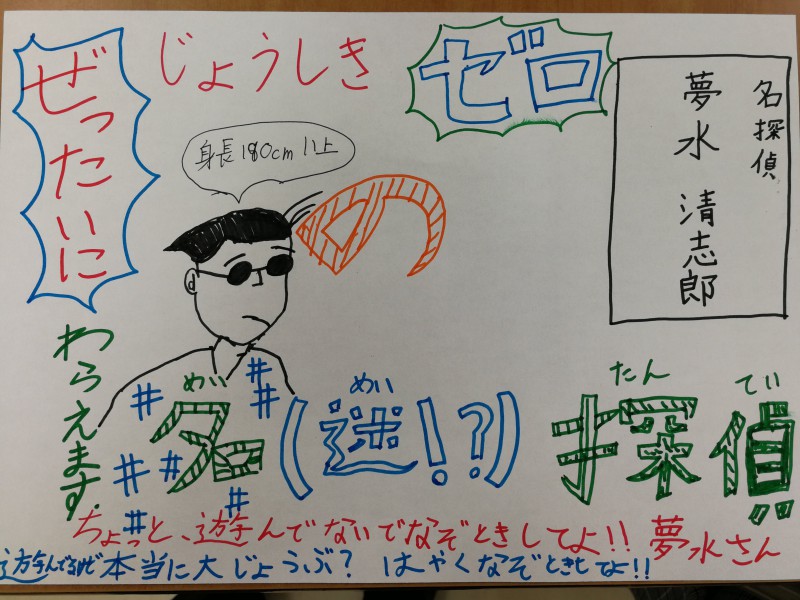 ぜったいに
わらえます。
じょうしき
ゼロ
の
身長180cm以上
名探偵
夢水 清志郎
めい めい たんてい
名(迷!?)探偵
ちょっと、遊んでないでなぞときしてよ!! 夢水さん
遊んでるけど本当に大じょうぶ? はやくなぞときしてよ!!